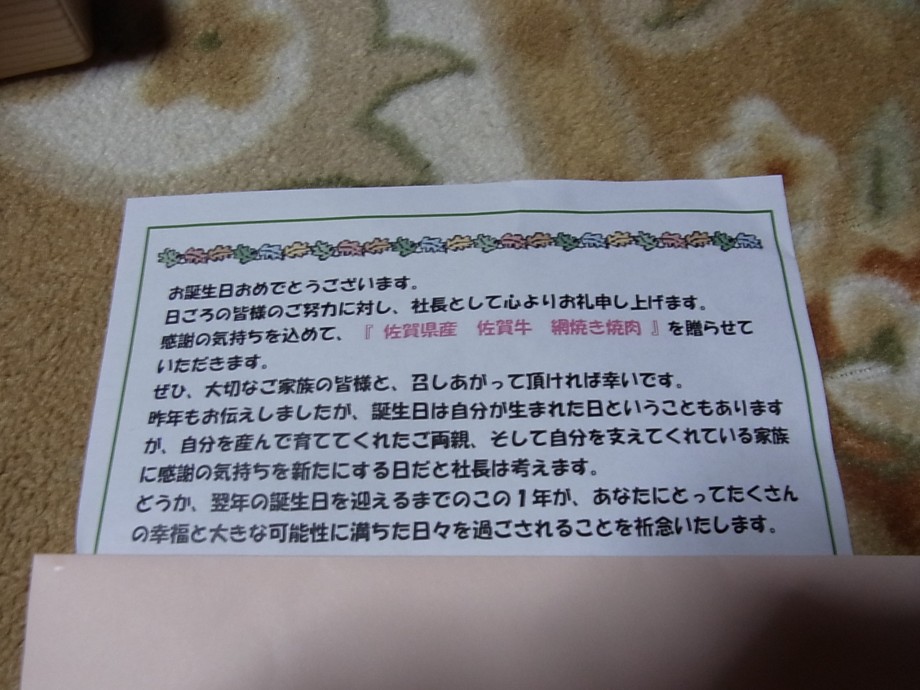 お誕生日おめでとうございます。
日ごろの皆様のご努力に対し、社長として心よりお礼申し上げます。
感謝の気持ちを込めて、『 佐賀県産 佐賀牛 網焼き焼肉 』を贈らせて
いただきます。
ぜひ、大切なご家族の皆様と、召しあがって頂ければ幸いです。
昨年もお伝えしましたが、誕生日は自分が生まれた日ということもあります
が、自分を産んで育ててくれたご両親、そして自分を支えてくれている家族
に感謝の気持ちを新たにする日だと社長は考えます。
どうか、翌年の誕生日を迎えるまでのこの１年が、あなたにとってたくさん
の幸福と大きな可能性に満ちた日々を過ごされることを祈念いたします。